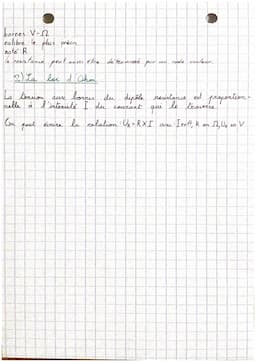 bornes V-Ω
calibre le plus précis
noté R
la résistance peut aussi être déterminée par un code couleur.
2) La loi d'Ohm
La tension aux bornes du dipôle résistance est proportion-
nelle à l'intensité I du courant que le traverse.
On peut écrire la relation: U = R×I avec I en A, R en Ω, U en V